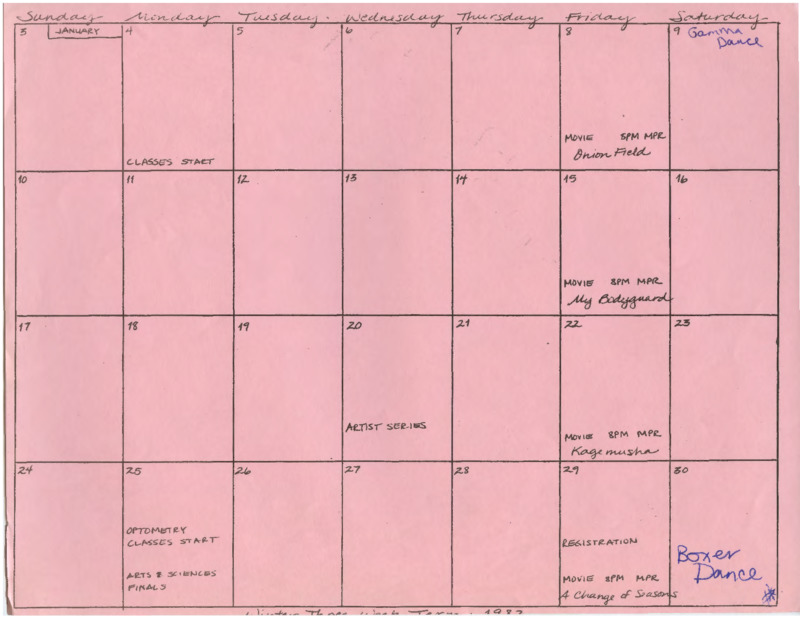 Sunday Monday Tuesday. Wednesday Thursday Friday Saturday
3 JANUARY 4 5 6 7 8 9 Gamma
Dance
MOVIE 8PM MPR
Onion Field
CLASSES START
10 11 12 13 14 15 16
MOVIE 8PM MPR
My Bodyguard
17 18 19 20 21 22 23
ARTIST SERIES
MOVIE 8PM MPR
Kagemusha
24 25 26 27 28 29 30
OPTOMETRY
CLASSES START
REGISTRATION
Boxer
Dance
ARTS & SCIENCES
FINALS
MOVIE 8PM MPR
A Change of Seasons
Winter Three Week Term